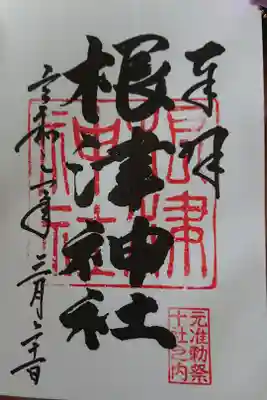 奉拝
根津神社
根津
神社
令和 年 三月 日
元准勅祭
十社之内